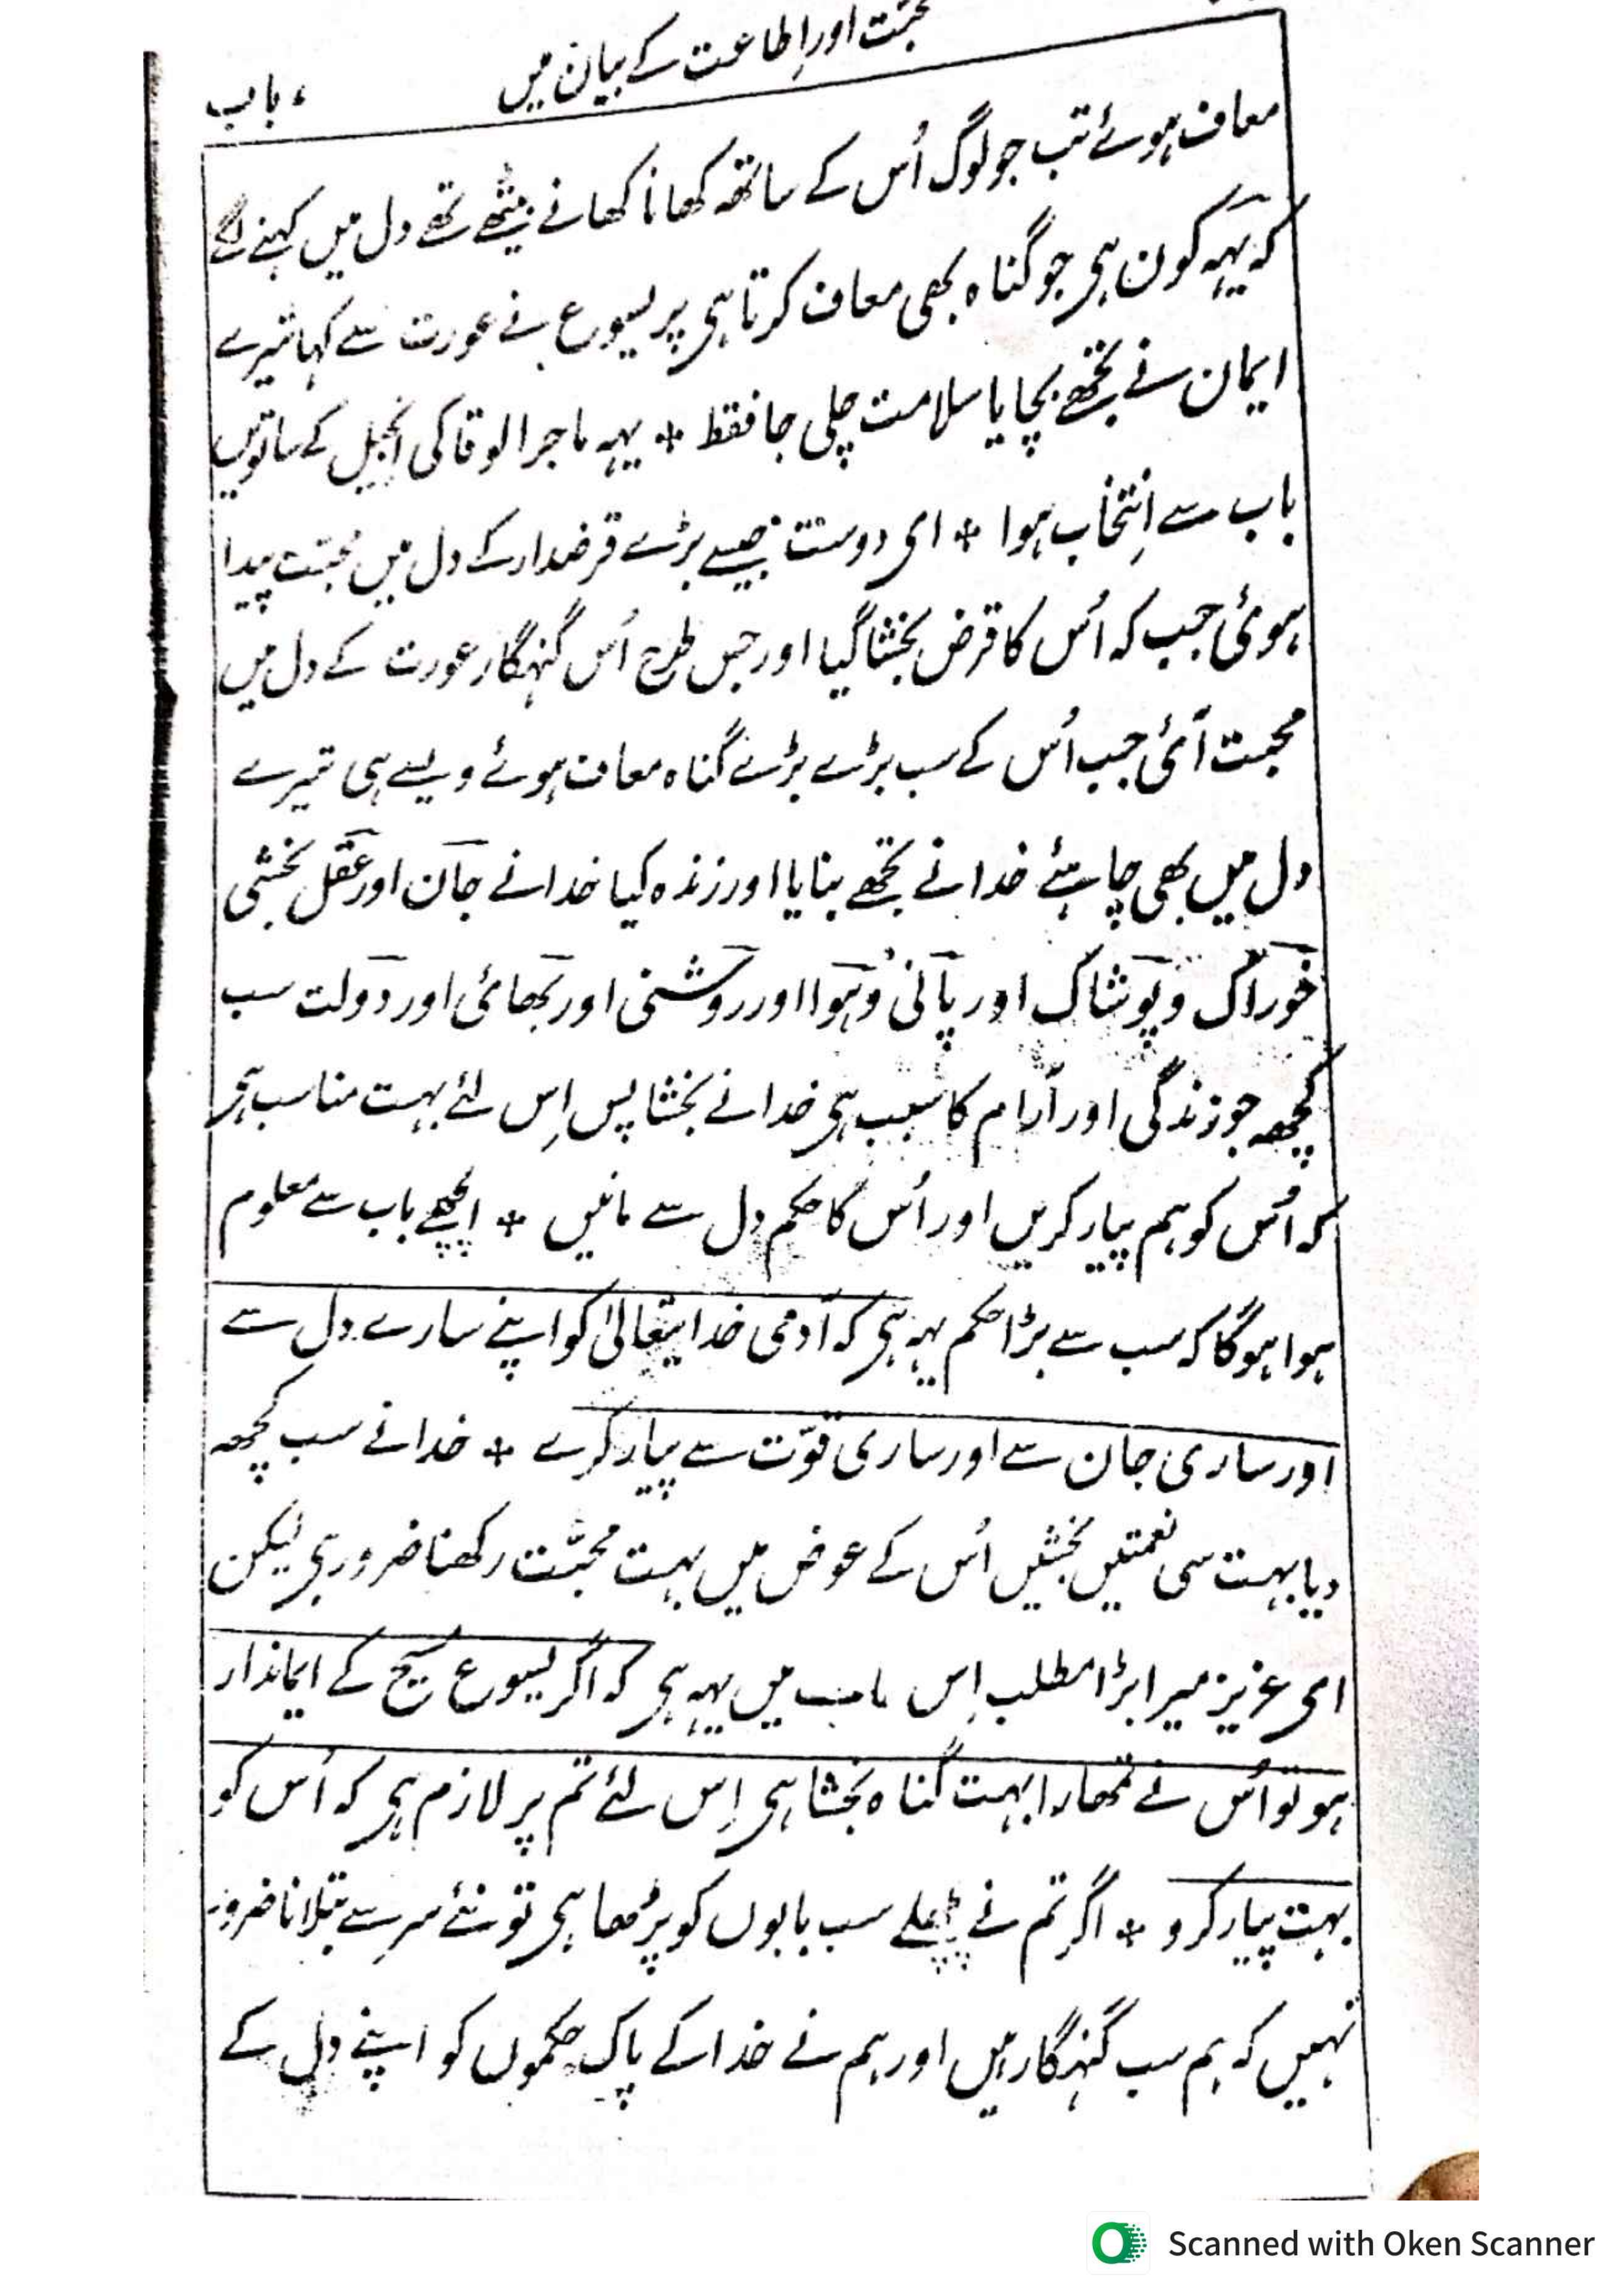 محبّت اور اِطاعت کے بیان میں
باب
معاف ہوئے تب جو لوگ اُس کے ساتھہ کھانا کھانے بیٹھے تھے دل میں کہنے لگے
کہ یہہ کون ہی جو گناہ بھی معاف کرتا ہی پر یسوع نے عورت سے کہا تیرے
ایمان نے تجھے بچایا سلامت چلی جا فقط * یہہ ماجرا لوقا کی انجیل کے ساتویں
باب سے اِنتخاب ہوا * ای دوست جیسے بڑے قرضدار کے دل میں محبّت پیدا
ہوئی جب کہ اُس کا قرض بخشا گیا اور جس طرح اُس گنہگار عورت کے دل میں
محبت آئی جب اُس کے سب بڑے بڑے گناہ معاف ہوئے ویسے ہی تیرے
دل میں بھی چاہئے خدا نے تجھے بنایا اور زندہ کیا خدا نے جان اور عقل بخشی
خوراک و پوشاک اور پانی و ہوا اور روشنی اور بھائی اور دولت سب
کچھہ جو زندگی اور آرام کا سبب ہی خدا نے بخشا پس اِس لئے بہت مناسب ہی
کہ اُس کو ہم پیار کریں اور اُس کا حکم دل سے مانیں * اچھے باب سے معلوم
ہوا ہوگا کہ سب سے بڑا حکم یہہ ہی کہ آدمی خدایتعالیٰ کو اپنے سارے دل سے
اور ساری جان سے اور ساری قوّت سے پیار کرے * خدا نے سب کچھہ
دیا بہت سی نعمتیں بخشیں اُس کے عوض میں بہت محبّت رکھنا ضرور ہی لیکن
ای عزیز میرا بڑا مطلب اِس باب میں یہہ ہی کہ اگر یسوع مسیح کے ایماندار
ہو تو اُس نے تمھارا بہت گناہ بخشا ہی اِس لئے تم پر لازم ہی کہ اُس کو
بہت پیار کرو * اگر تم نے پچھلے سب بابوں کو پڑھا ہی تو نئے سر سے بتلانا ضرور
نہیں کہ ہم سب گنہگار ہیں اور ہم نے خدا کے پاک حکموں کو اپنے دل کے
Scanned with Oken Scanner